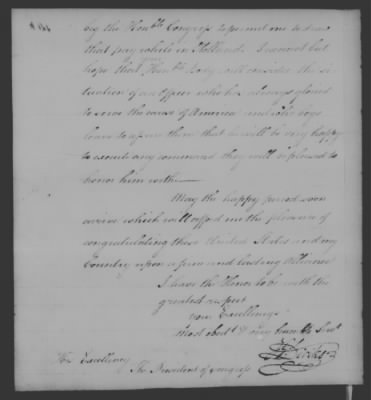 by the Honble Congress to permit me to draw
that pay while in Holland. I cannot but
hope that your Honble Body will consider the si-
tuation of an Officer who has always gloried
to serve the cause of America and who begs
leave to assure them that he will be very happy
to execute any command they will be pleased to
honor him with
May the happy period soon
arrive which will afford me the pleasure of
congratulating these United States and my
Country upon a firm and lasting Alliance
I have the Honor to be with the
greatest respect
your Excellency's
most obedt & very humble Servt
His Excellency
The President of Congress